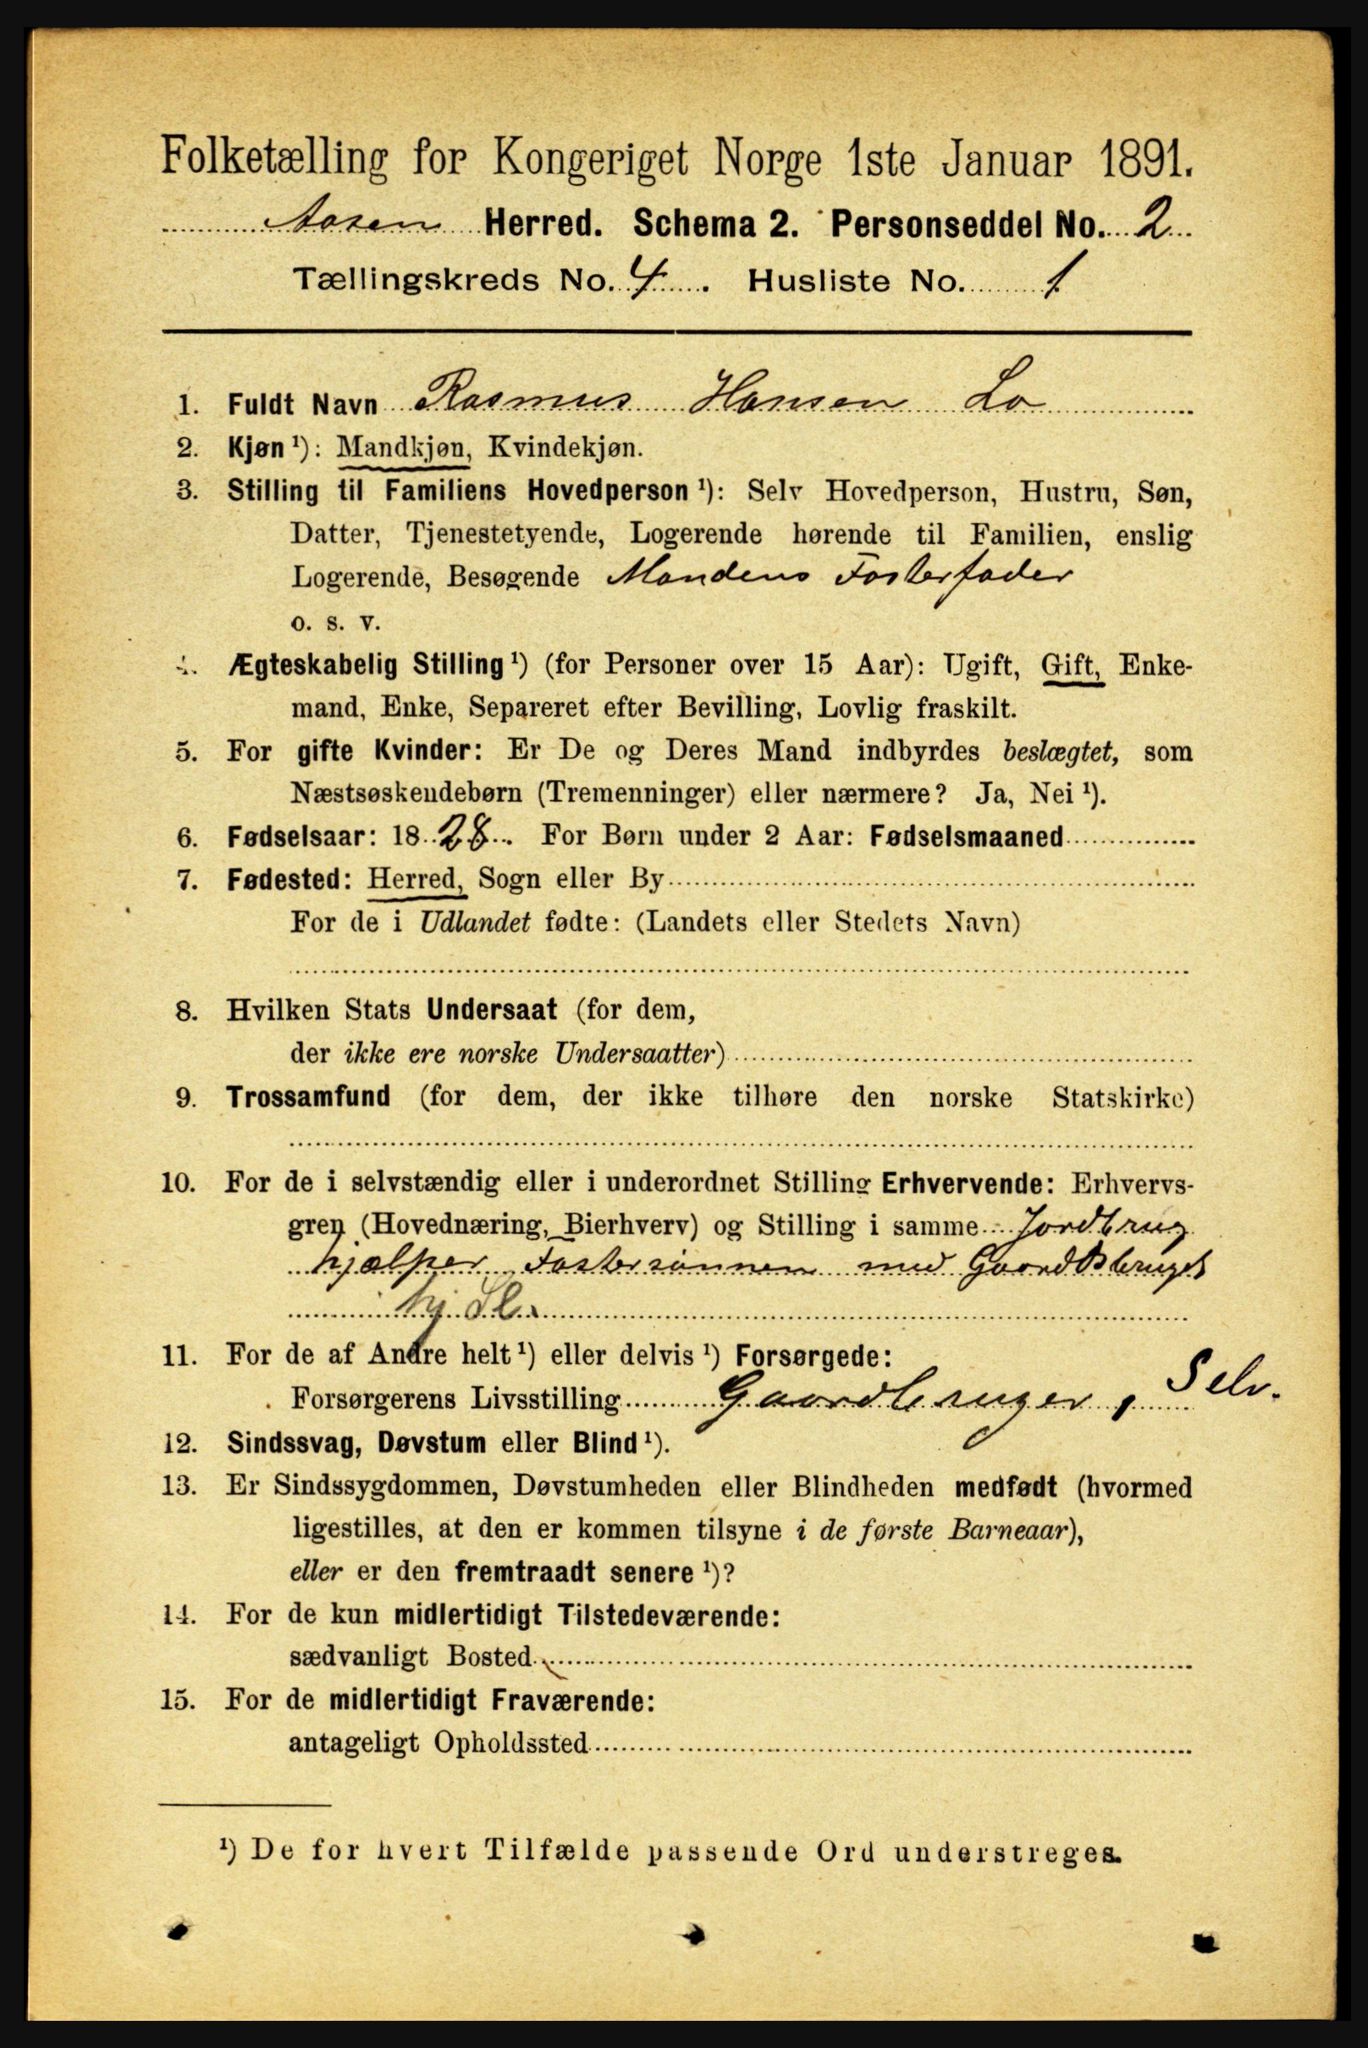 Folketælling for Kongeriget Norge 1ste Januar 1891.
Aasen Herred. Schema 2. Personseddel No. 2
Tællingskreds No. 4. Husliste No. 1
1. Fuldt Navn Rasmus Hansen Lo
2. Kjøn ¹): Mandkjøn, Kvindekjøn.
3. Stilling til Familiens Hovedperson ¹): Selv Hovedperson, Hustru, Søn,
Datter, Tjenestetyende, Logerende hørende til Familien, enslig
Logerende, Besøgende Mandens Fosterfader
o. s. v.
4. Ægteskabelig Stilling ¹) (for Personer over 15 Aar): Ugift, Gift, Enke-
mand, Enke, Separeret efter Bevilling, Lovlig fraskilt.
5. For gifte Kvinder: Er De og Deres Mand indbyrdes beslægtet, som
Næstsøskendebørn (Tremenninger) eller nærmere? Ja, Nei ¹).
6. Fødselsaar: 1828. For Børn under 2 Aar: Fødselsmaaned
7. Fødested: Herred, Sogn eller By
For de i Udlandet fødte: (Landets eller Stedets Navn)
8. Hvilken Stats Undersaat (for dem,
der ikke ere norske Undersaatter)
9. Trossamfund (for dem, der ikke tilhøre den norske Statskirke)
10. For de i selvstændig eller i underordnet Stilling Erhvervende: Erhvervs-
gren (Hovednæring, Bierhverv) og Stilling i samme Jordbrug
hjælper Fostersønnen med Gaardsbruget
hj Sl.
11. For de af Andre helt ¹) eller delvis ¹) Forsørgede:
Forsørgerens Livsstilling Gaardbruger, Selv.
12. Sindssvag, Døvstum eller Blind ¹).
13. Er Sindssygdommen, Døvstumheden eller Blindheden medfødt (hvormed
ligestilles, at den er kommen tilsyne i de første Barneaar),
eller er den fremtraadt senere ¹)?
14. For de kun midlertidigt Tilstedeværende:
sædvanligt Bosted
15. For de midlertidigt Fraværende:
antageligt Opholdssted
¹) De for hvert Tilfælde passende Ord understreges.